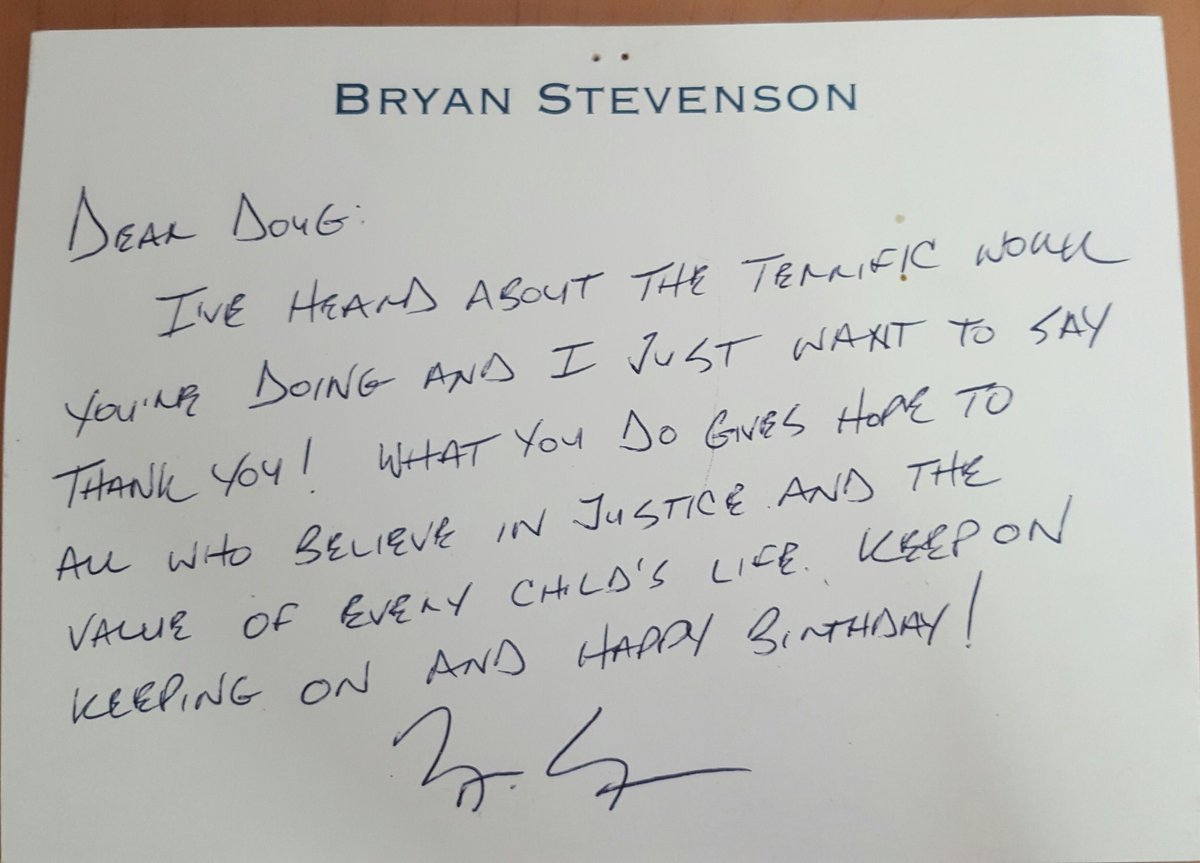 BRYAN STEVENSON
DEAR DOUG:
I'VE HEARD ABOUT THE TERRIFIC WORK
YOU'RE DOING AND I JUST WANT TO SAY
THANK YOU! WHAT YOU DO GIVES HOPE TO
ALL WHO BELIEVE IN JUSTICE AND THE
VALUE OF EVERY CHILD'S LIFE. KEEP ON
KEEPING ON AND HAPPY BIRTHDAY!